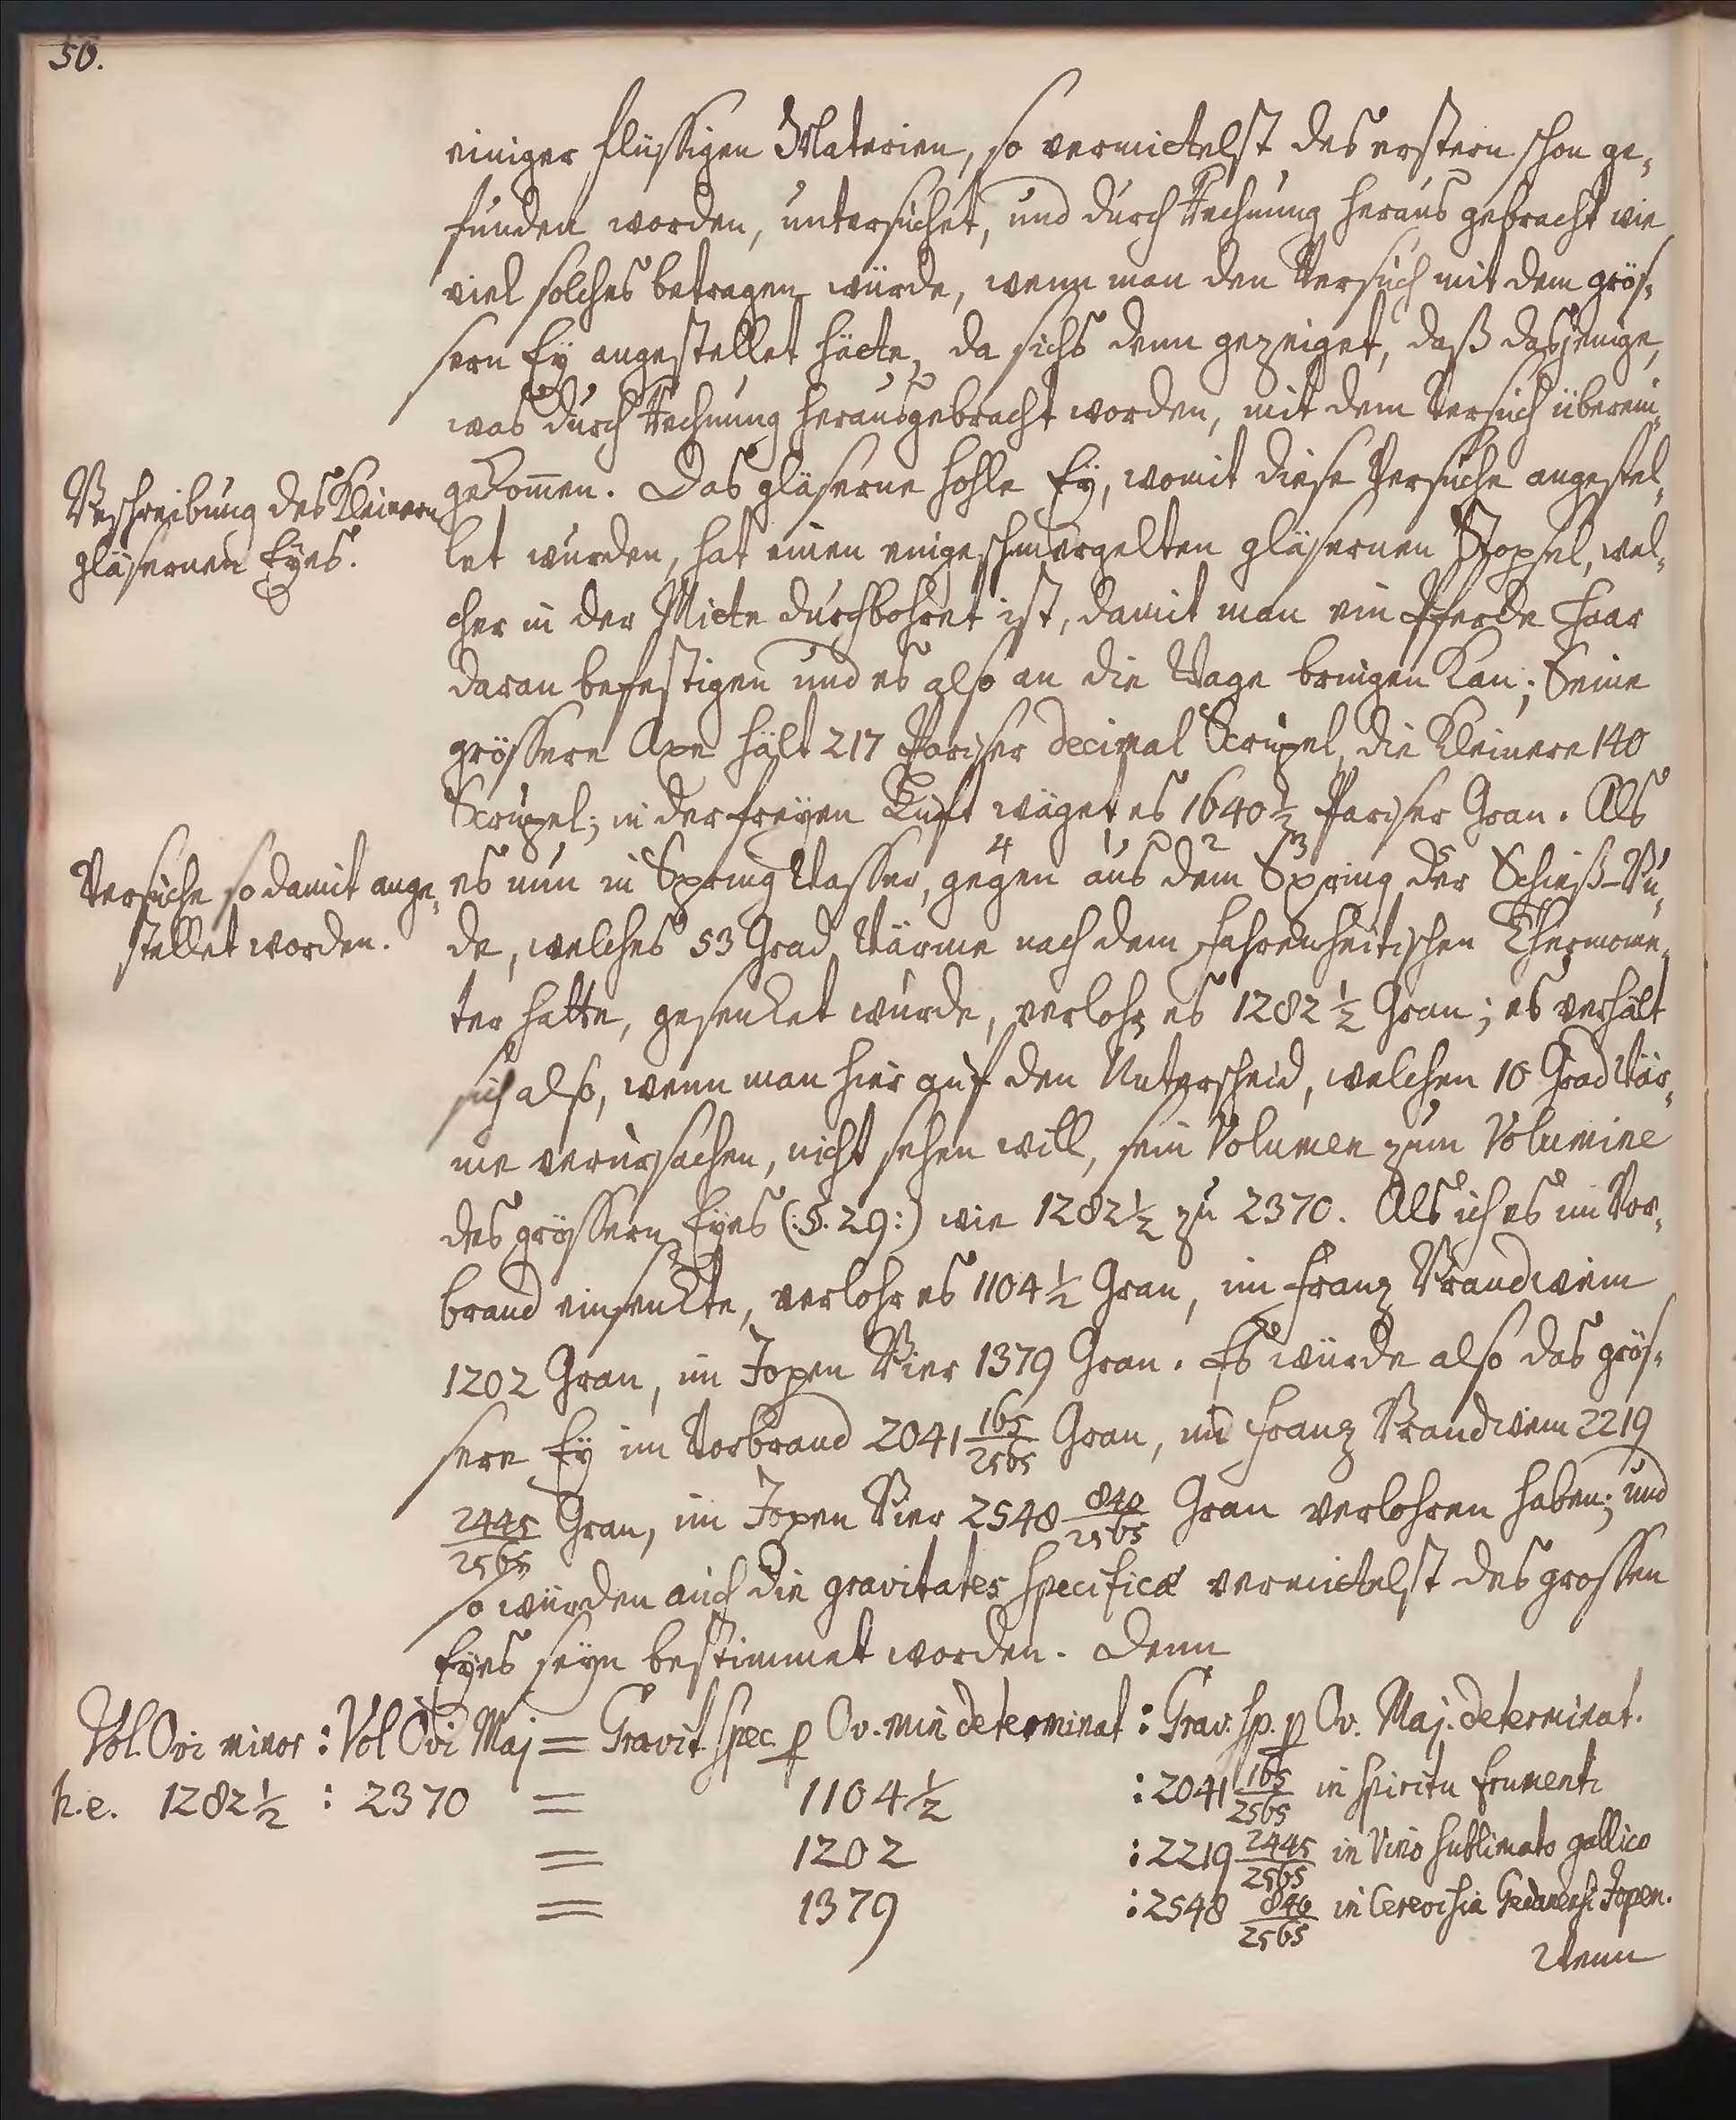 50.
einiger flüssigen Materien, so vermittelst des erstern schon ge,
funden worden, untersuchet, und durch Rechnung heraus gebracht wie
viel solches betragen würde, wenn man den Versuch mit dem grös,
sern Ey angestellet hätte, da sichs denn gezeiget, daß dasjenige,
was durch Rechnung herausgebracht worden, mit dem Versuch überein,
Beschreibung des Kleinern
gläsernen Eyes.
gekom̅en. Das gläserne hohle Ey, womit diese Versuche angestel,
let wurden, hat einen eingeschmergelten gläsernen Stopsel, wel,
cher in der Mitte durchbohret ist, damit man ein Pferde Haar
daran befestigen und es also an die Wage bringen kan; Seine
grössere Axe hält 217 Pariser decimal Scrupel, die Kleinere 140
Scrupel; in der freyen Luft wäget es 1640 ½ Pariser Gran. Als
Versuche so damit ange,
stellet worden.
4 1 2 3
es nun in Spring Wasser, gegen aus dem Spring der Schieß-Bu,
de, welches 53 Grad Wärme nach dem Fahrenheitischen Thermome,
ter hatte, gesenket wurde, verlohr es 1282 ½ Gran; es verhält
sich also, wenn man hier auf den Unterscheid, welchen 10 Grad Wär,
me verursachen, nicht sehen will, sein Volumen zum Volumine
des grössern Eyes (:§. 29:) wie 1282 ½ zu 2370. Als ich es im Vor,
brand einsenkte, verlohr es 1104 ½ Gran, im Franz Brandwein
1202 Gran, im Jopen Bier 1379 Gran. Es würde also das grös,
sere Ey im Vorbrand 2041 165/2565 Gran, im Franz Brandwein 2219
2445/2565 Gran, im Jopen Bier 2548 840/2565 Gran verlohren haben; und
so würden auch die gravitates specificæ vermittelst des grossen
Eyes seyn bestimmet worden. Denn
Vol. Ovi minor : Vol Ovi Maj = Gravit. spec. p Ov. min determinat : Grav. sp. p Ov. Maj. determinat.
h.e. 1282 ½ : 2370 = 1104 ½ : 2041 165/2565 in Spiritu frumenti
= 1202 : 2219 2445/2565 in Vino sublimato gallico
= 1379 : 2548 840/2565 in Cerevisia Gedanensi Jopen.
Wenn